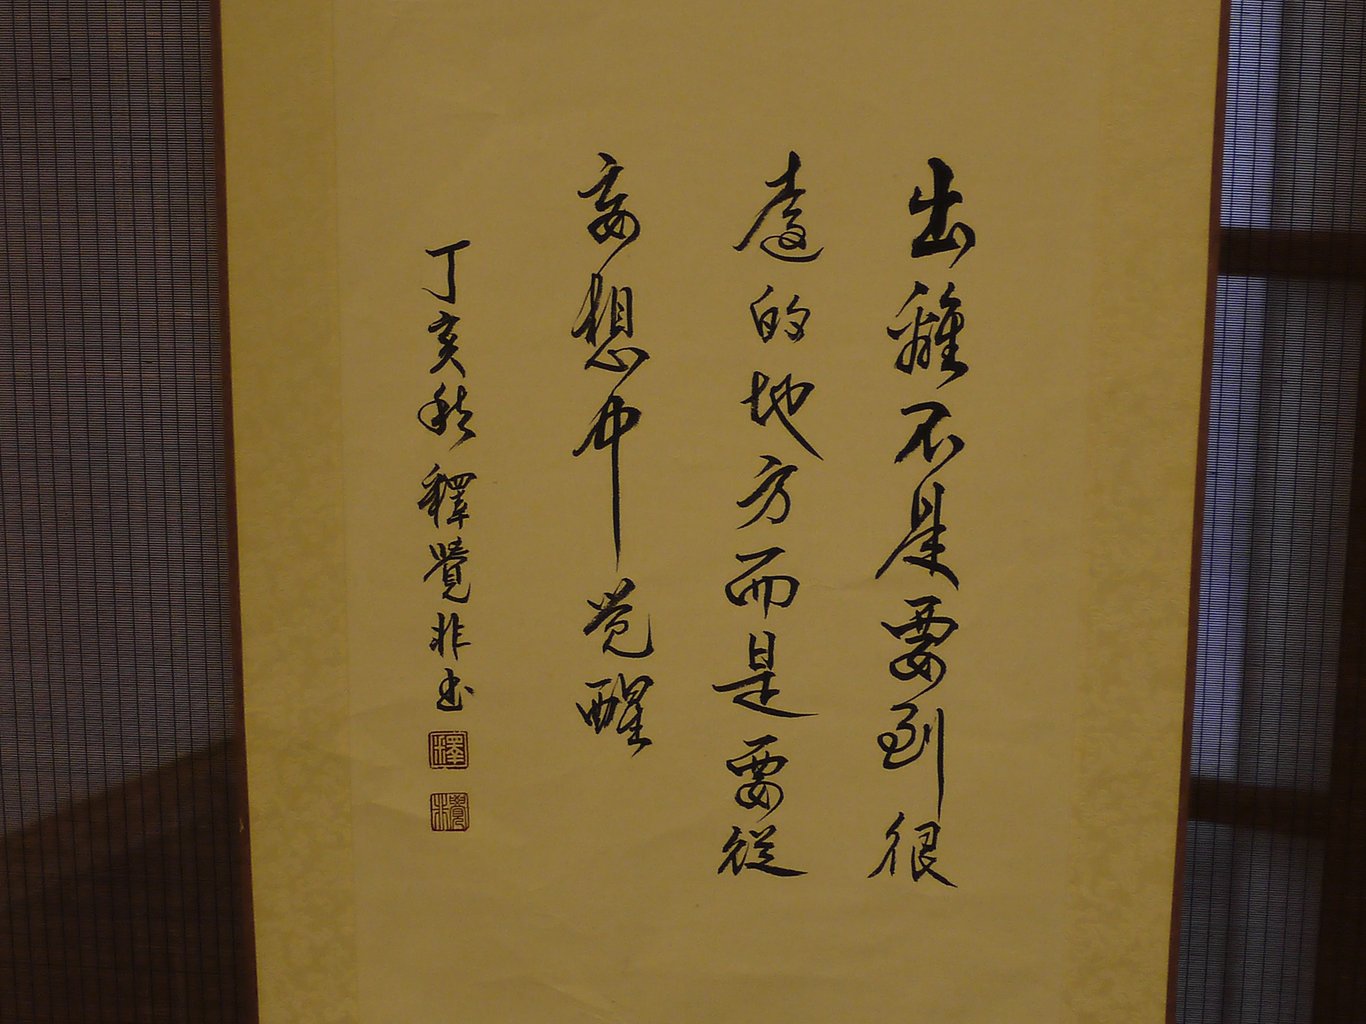 出離不是要到很
遠的地方而是要從
妄想中覺醒
丁亥秋釋覺非书